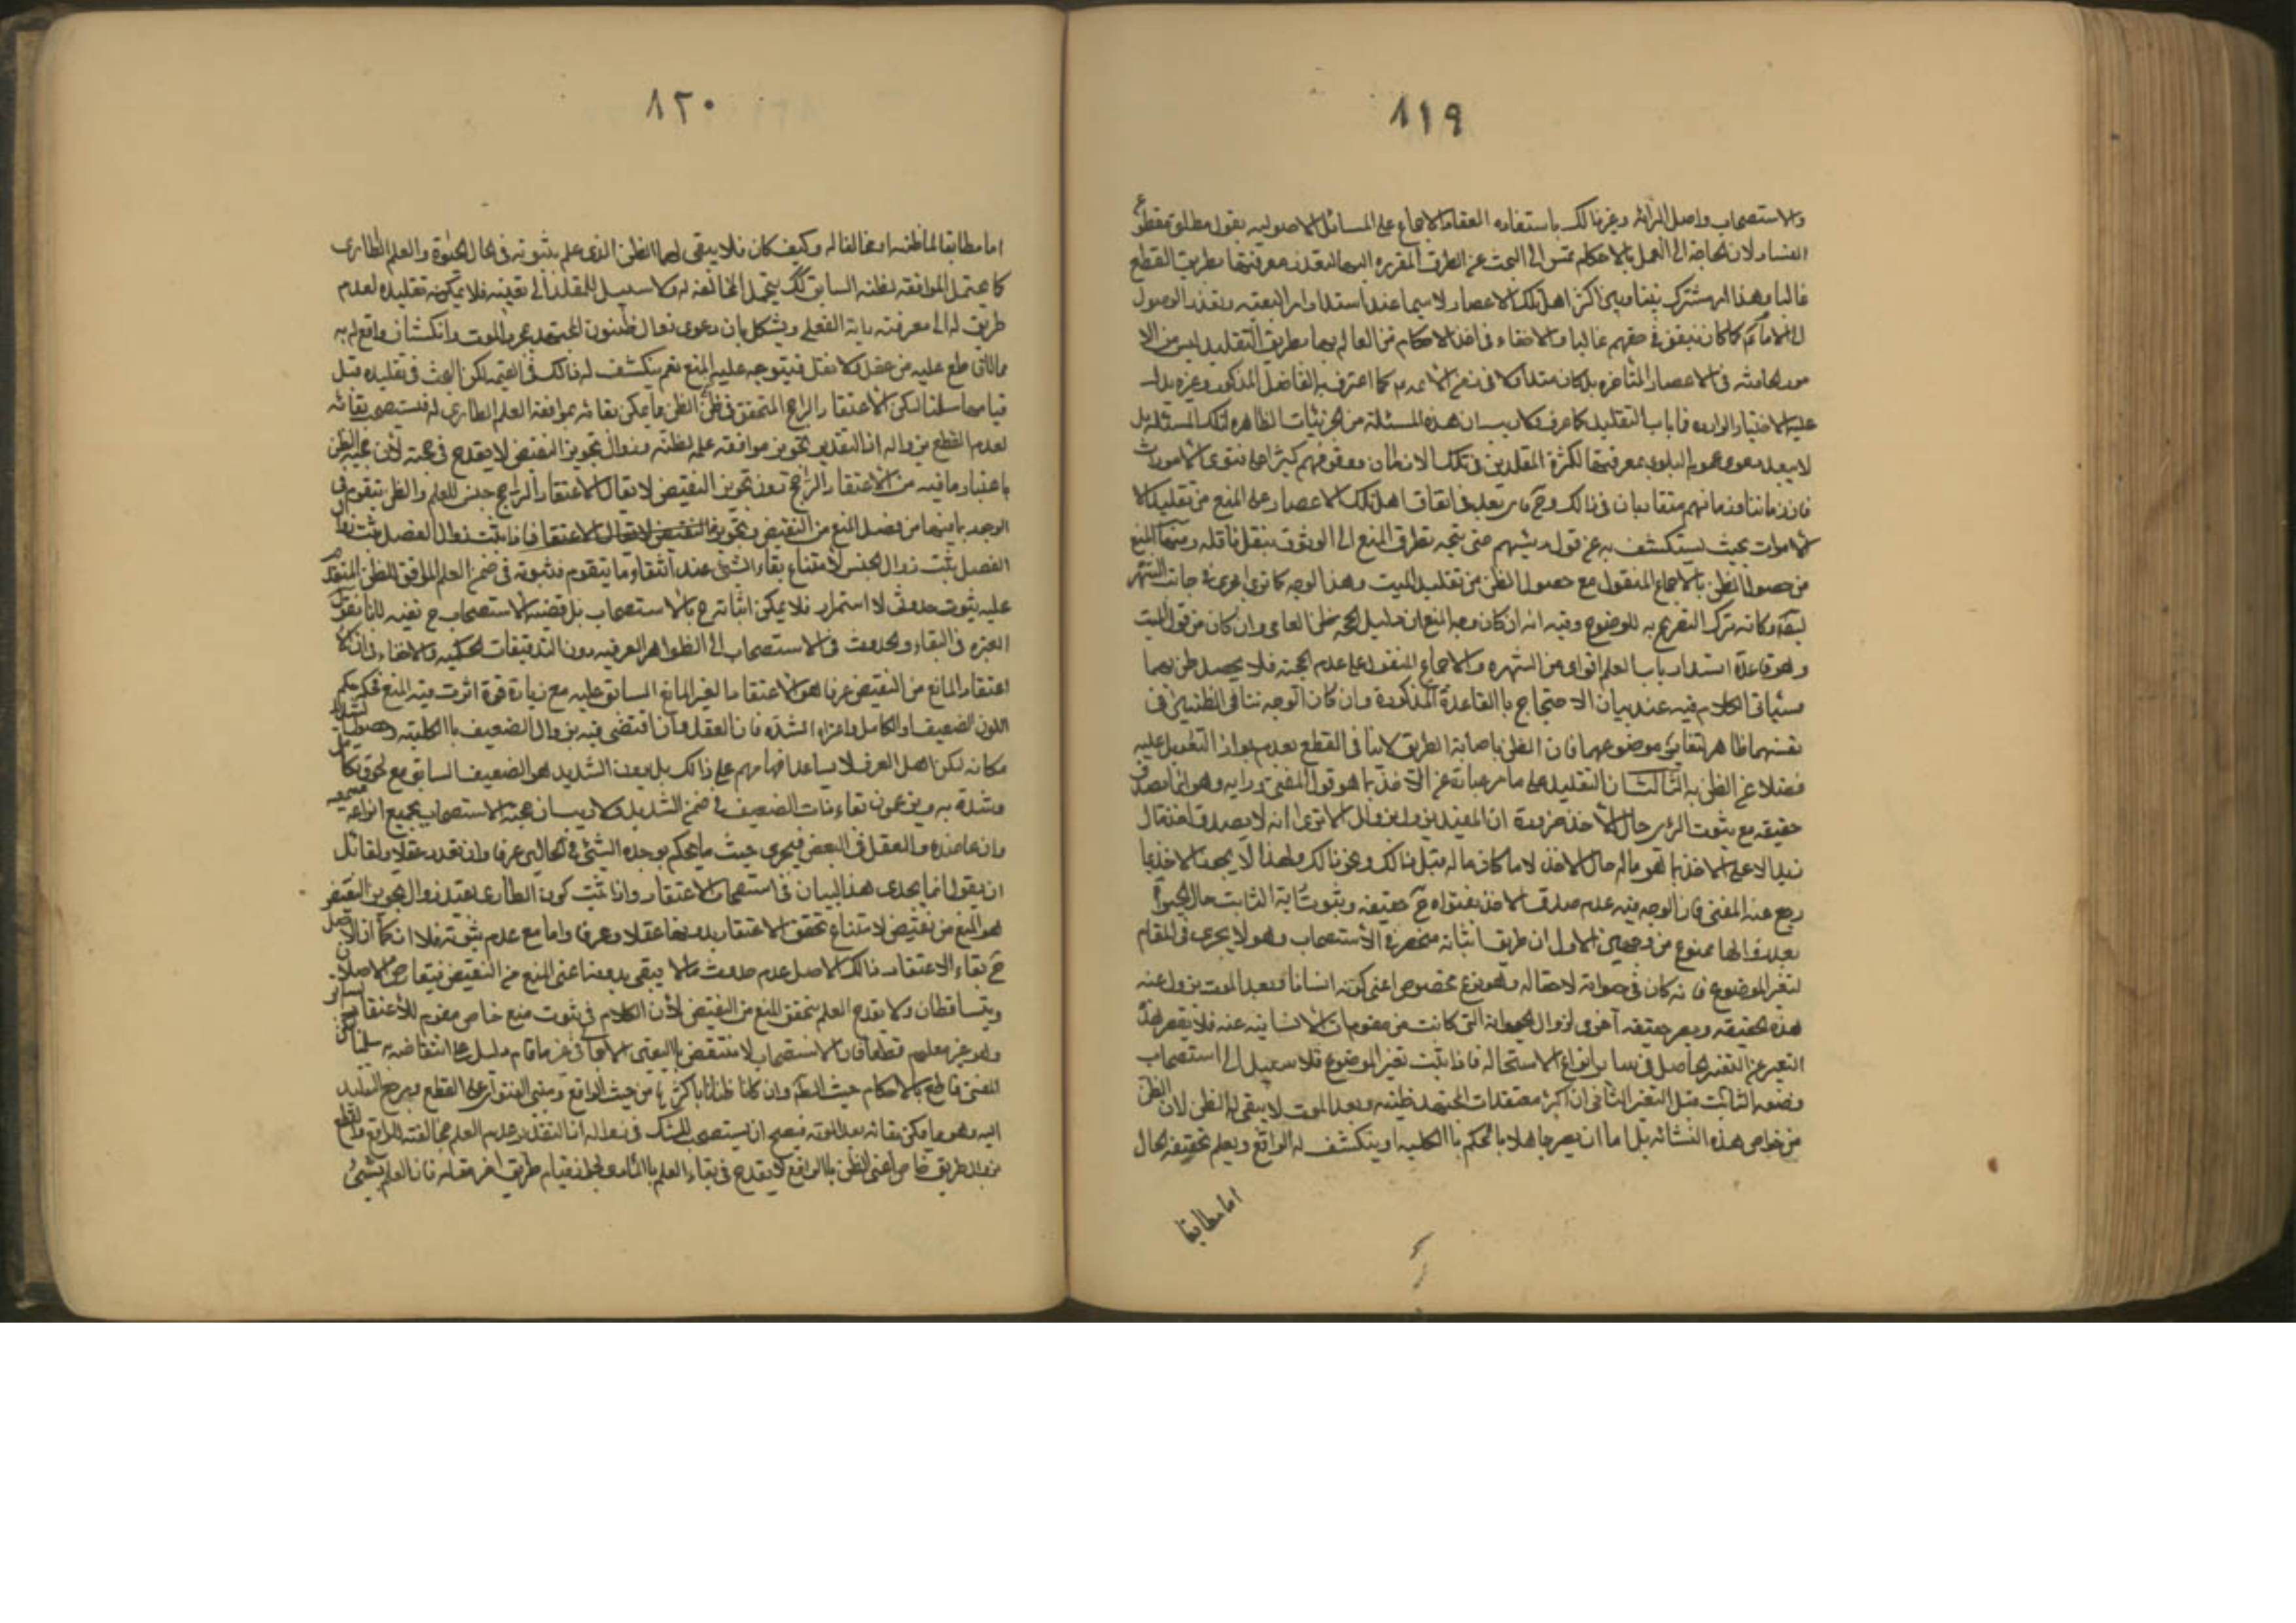 ٨١٩
والاستصحاب واصل البرائة وغير ذالك باستفاده انعقاد الاجماع على المسائل الاصوليه بقول مطلق مقطوع
الفساد لان الحاجة الى العمل بالاحكام تمس الى البحث عن الطرق المقرره اليها لتعذر معرفتها بطريق القطع
غالبا وهذا امر مشترك بيننا وبين اكثر اهل تلك الاعصار ولا سيما عند استداد امر التقيه وتعذر الوصول
الى الامام كما كان يتفق في حقهم غالبا ولا خفاء في ان اخذ الاحكام من العالم بها بطريق التقليد ليس من الا
مور الحادثه في الاعصار المتاخره بل كان متداولا في زمن الائمه كما اعترف به الفاضل المذكور وغيره يدل
عليه الاخبار الوارده في باب التقليد كما عرف ولا ريب ان هذه المسئلة من الجزئيات الظاهره لتلك المسئلة بل
لا يبعد دعوى عموم البلوى بمعرفتها لكثرة المقلدين في تلك الازمان ووقوفهم كثيرا على فتوى الاموات
فان زماننا وزمانهم متقاربان في ذالك وح فلا بعد في اتفاق اهل تلك الاعصار على المنع من تقليد الا
الاموات بحيث يستكشف به عن قول رئيسهم حتى يتجه تطرق المنع الى الوثوق بنقل ناقله ومنها المنع
من حصول الظن بالاجماع المنقول مع حصول الظن من تقليد الميت وهذا الوجه كما ترى اجرى في جانب الشهر
لبقه وكانه ترك التصريح به للوضوح وفيه انه ان كان وجه المنع ان دليل الحجه ظن العامى وان كان من قول الميت
وهو قاعدة انسداد باب العلم اقوى من الشهره والاجماع المنقول على عدم الحجته فلا يحصل ظن بهما
فسياتى الكلام فيه عند بيان الاحتجاج باالقاعدة المذكورة وان كان الوجه تنافى الظنين فى
نفسهما ظاهر لتغاير موضوعهما فان الظن باصابة الطريق لا ينافى القطع بعدم جواز التعويل عليه
فضلا عن الظن به الثالث ان التقليد على ما مر عبارة عن الاخذ بما هو قول المفتى ورايه وهو انما يصدق
حقيقه مع ثبوت الراى حال الاخذ ضرورة ان المقيد يزول بزوال الا ترى انه لا يصدق اخذ مال
زيد الا على الاخذ بما هو ماله حال الاخذ لا ما كان ماله قبل ذالك ونحو ذالك ولهذا لا يجوز الاخذ بما
رجع عنه المفتى فان الوجه فيه عدم صدق الاخذ بفتواه ح حقيقه وثبوت راية الثابت حال الحيوة
بعد وفاتها ممنوع من وجهين الاول ان طريق اثباته منحصر فى الاستصحاب وهو لا يجرى فى المقام
لتغير الموضوع فانه كان فى حيواته لا محاله وهو نوع مخصوص اعنى كونه انسانا وبعد الموت يزول عنه
هذه الحقيقه ويصير حقيقه اخرى لزوال الحيوانة التى كانت من مقومات الانسانيه عنه فلا يقصر هذا
التغير عن التغير الحاصل فى ساير انواع الاستحاله فاذا ثبت تغير الموضوع فلا سبيل الى استصحاب
وصفه الثابت قبل التغير الثانى ان اكثر معتقدات المجتهد ظنيته وبعد الموت لا يبقى له الظن لان الظن
من خواص هذه النشائه بل اما ان يصير جاهلا بالحكم باالكليه او ينكشف له الواقع ويعلم بحقيقه الحال
اما مطابقا
٨٢٠
اما مطابقا لما ظنه او مخالفا له وكيف كان فلا يبقى لهما الظن الذى علم بثبوته فى الحال الحيوة والعلم الطارى
كما يحتمل الموافقه لظنه السابق كك يحتمل المخالفه له ولا سبيل للمقلد الى تعيينه فلا يمكنه تقليده لعدم
طريق له الى معرفته راية الفعلى ويشكل بان دعوى زوال ظنون المجتهد بمجرد الموت وانكشاف واقع له به
مما لا قاطع عليه من عقل ولا نقل فيتوجه عليه المنع نعم ينكشف له ذالك فى القيمه لكن البحث فى تقليده قبل
قيامها سلمنا لكن الاعتقاد الراجح المتحقق فى ظن الظن ما يمكن بقائه بموافقة العلم الطارى له فيستصحب بقائه
لعدم القطع بزواله اذ التقدير تجويز موافقه علمه لظنه وزوال تجويز النقيض لا يقدح فى حجته لان حجيه الظن
باعتبار ما فيه من الاعتقاد الراجح دون تجويز النقيض لا يقال الاعتقاد الراجح جنس للعلم والظن يتقوم فى
الوجود باحدهما من فصل المنع من النقيض وتجويز النقيض فاذا ثبت زوال الفصل ثبت زوال
الفصل يثبت زوال الجنس لامتناع بقاء الشئ عند انتفاء ما يتقوم فثبوته فى ضمن العلم الموافق للظن المتقدم
عليه ثبوت حدوث لا استمرار فلا يمكن اثباته ح بالاستصحاب بل قضيه الاستصحاب ح نفيه لانا نقول
العبره فى البقاء والحدوث فى الاستصحاب الى الظواهر العرفيه دون التدقيقات الحكميه ولا خفاء فى ان الا
اعتقاد المانع من النقيض عرفا هو الاعتقاد الغير المانع السابق عليه مع زيادة قوة اثرت فيه المنع فحكمه حكم
اللون الضعيف اذا تكامل واعتراه الشده فان العقل وان اقتضى فيه بزوال الضعيف باالكليته وحصول الشديد
مكانه لكن اهل العرف لا يساعد افهامهم على ذالك بل يعدون الشديد هو الضعيف السابق مع لحوق تكامل
وشدة به ويزعمون بقاء ذات الضعيف فى ضمن الشديد ولا ريب ان حجته الاستصحاب بجميع انواعه سمعيه
وان عاضده والعقل فى البعض فيجرى حيث ما يحكم بوحدة الشئ فى الحالين عرفا وان تعدد عقلا ولقائل
ان يقول انما يجدى هذا البيان فى استصحاب الاعتقاد واذا ثبت كون الطارى بعد زوال تجويز النقيض
هو المنع من نقيض لامتناع تحقق الاعتقاد بدونهما عقلا وعرفا واما مع عدم ثبوته فلا اذ كما ان الاصل
ح بقاء الاعتقاد كذالك الاصل عدم حدوث ما لا يبقى بدونه اعنى المنع من النقيض فيتعارض الاصلان
ويتساقطان ولا يقدح العلم بتحقق المنع من النقيض لان الكلام فى ثبوت منع خاص مقوم للاعتقاد السابق
وهو غير معلوم قطعا فان الاستصحاب لا ينتقض باليقين الاجمالى غير ما قام دليل على انتقاضه به سلمنا لكن
المفتى قاطع بالاحكام حيث الظم وان كان ظانا باكثرها من حيث الواقع ومبنى الفتوى على القطع ومرجع التقليد
اليه وهو ما يمكن بقائه بعد الموته فيصح ان يستصحب للشك فى زواله اذ التقدير عدم العلم بمخالفته للواقع وانقطاع
من الطريق خاص اعنى الظن باالواقع لا يقدح فى بقاء العلم باالظاهر لجواز قيام طريق اخر مقامه فان العلم بشئ